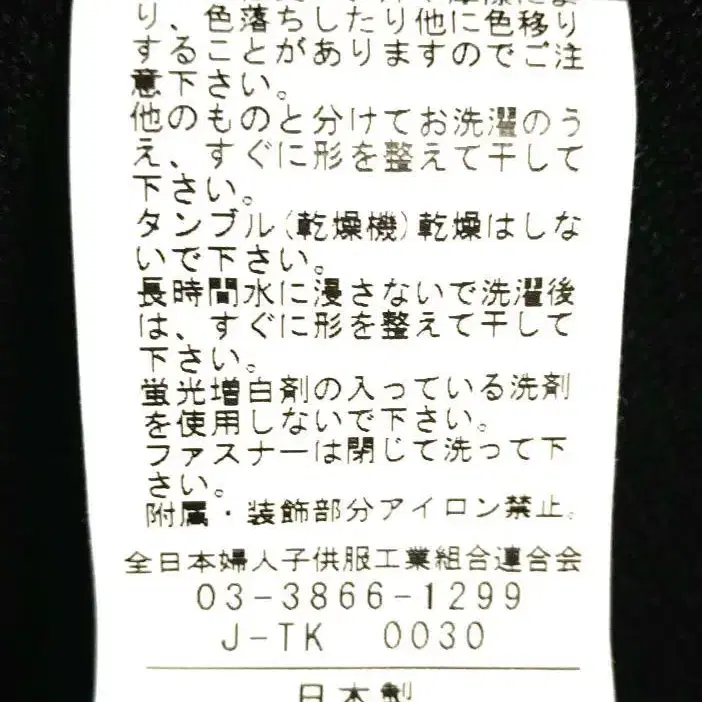 り、色落ちしたり他に色移り
することがありますのでご注
意下さい。
他のものと分けてお洗濯のう
え、すぐに形を整えて干して
下さい。
タンブル(乾燥機)乾燥はしな
いで下さい。
長時間水に浸さないで洗濯後
は、すぐに形を整えて干して
下さい。
蛍光増白剤の入っている洗剤
を使用しないで下さい。
ファスナーは閉じて洗って下
さい。
附属・装飾部分アイロン禁止。
全日本婦人子供服工業組合連合会
03-3866-1299
J-TK 0030
日本製